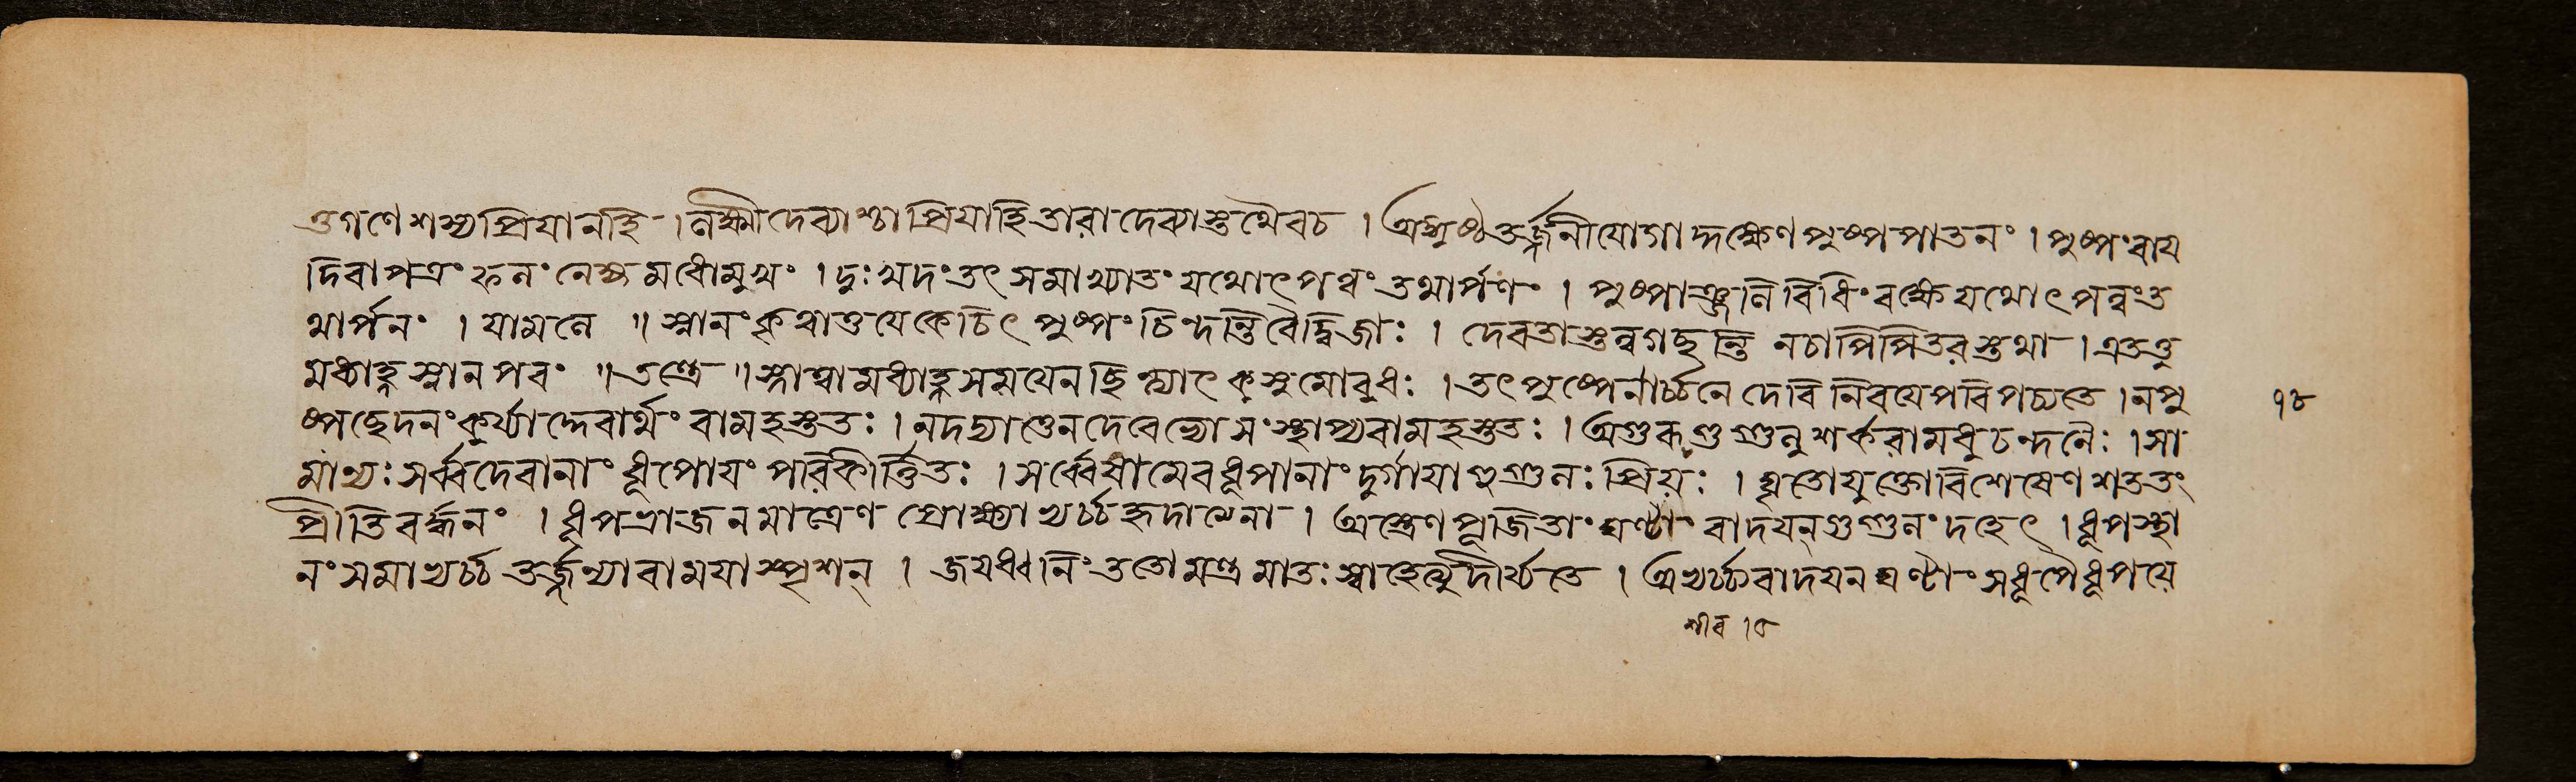 তগণেশস্যপ্রিযানহি । লক্ষ্মীদেব্যাশ্চাপ্রিযাহি তারাদেব্যাস্তথৈবচ । অঙ্গুষ্ঠতর্জ্জনীযোগাদ্দক্ষেণ পুষ্পপাতনং । পুষ্পং বায
দিবাপত্রং ফলং নেষ্টমধোমুখং । দুঃখদং তৎ সমাখ্যাতং যথোৎপন্নং তথার্পণং । পুষ্পাঞ্জলিবিধিং বক্ষে যথোৎপন্নংত
থার্পনং । যামলে ॥ স্নানং কৃত্বাতু যে কেচিৎ পুষ্পং চিন্দন্তি বৈ দ্বিজাঃ । দেবতাস্তন্নগছন্তি নচাপি পিতরস্তথা । এতত্তু
মধ্যাহ্নস্নানপরং ॥ তন্ত্রে ॥ স্নাত্বা মধ্যাহ্নসময়েনছিন্দ্যাৎ কুসুমোবুধঃ । তৎপুষ্পেনার্চ্চনে দেবি নিরযেপরিপচ্যতে । নপু
ষ্পছেদনং কুর্য্যাদ্দেবার্থং বামহস্ততঃ । নদদ্যাত্তেনদেবেভ্যো সংস্থাপ্যবামহস্ততঃ । অগুরুগুগ্গুলুশর্করামধুচন্দনৈঃ । সা
মান্যঃ সর্ব্বদেবানাং ধূপোযং পরিকীর্ত্তিতঃ । সর্ব্বেষামেব ধূপানাং দুর্গাযাগুগ্গুলঃ প্রিয়ঃ । ঘৃতোযুক্তোবিশেষেণ শততং
প্রীতিবর্দ্ধনং । ধূপভাজনমাত্রেণ প্রোক্ষ্যাভ্যর্চ্চ্যহৃদাণুনা । অস্ত্রেণ পূজিতাং ঘণ্টাং বাদযন্ গুগ্গুলং দহেৎ । ধূপস্থা
নং সমাভ্যর্চ্চ্য তর্জ্জন্যাবামযাস্পৃশন্ । জযধ্বনিং ততোমন্ত্রমাতঃ স্বাহেত্যুদীর্য্যতে । অভ্যর্চ্চ্যবাদযন ঘণ্টাং সধূপৈধূপযে
১৮
শীব ।৫